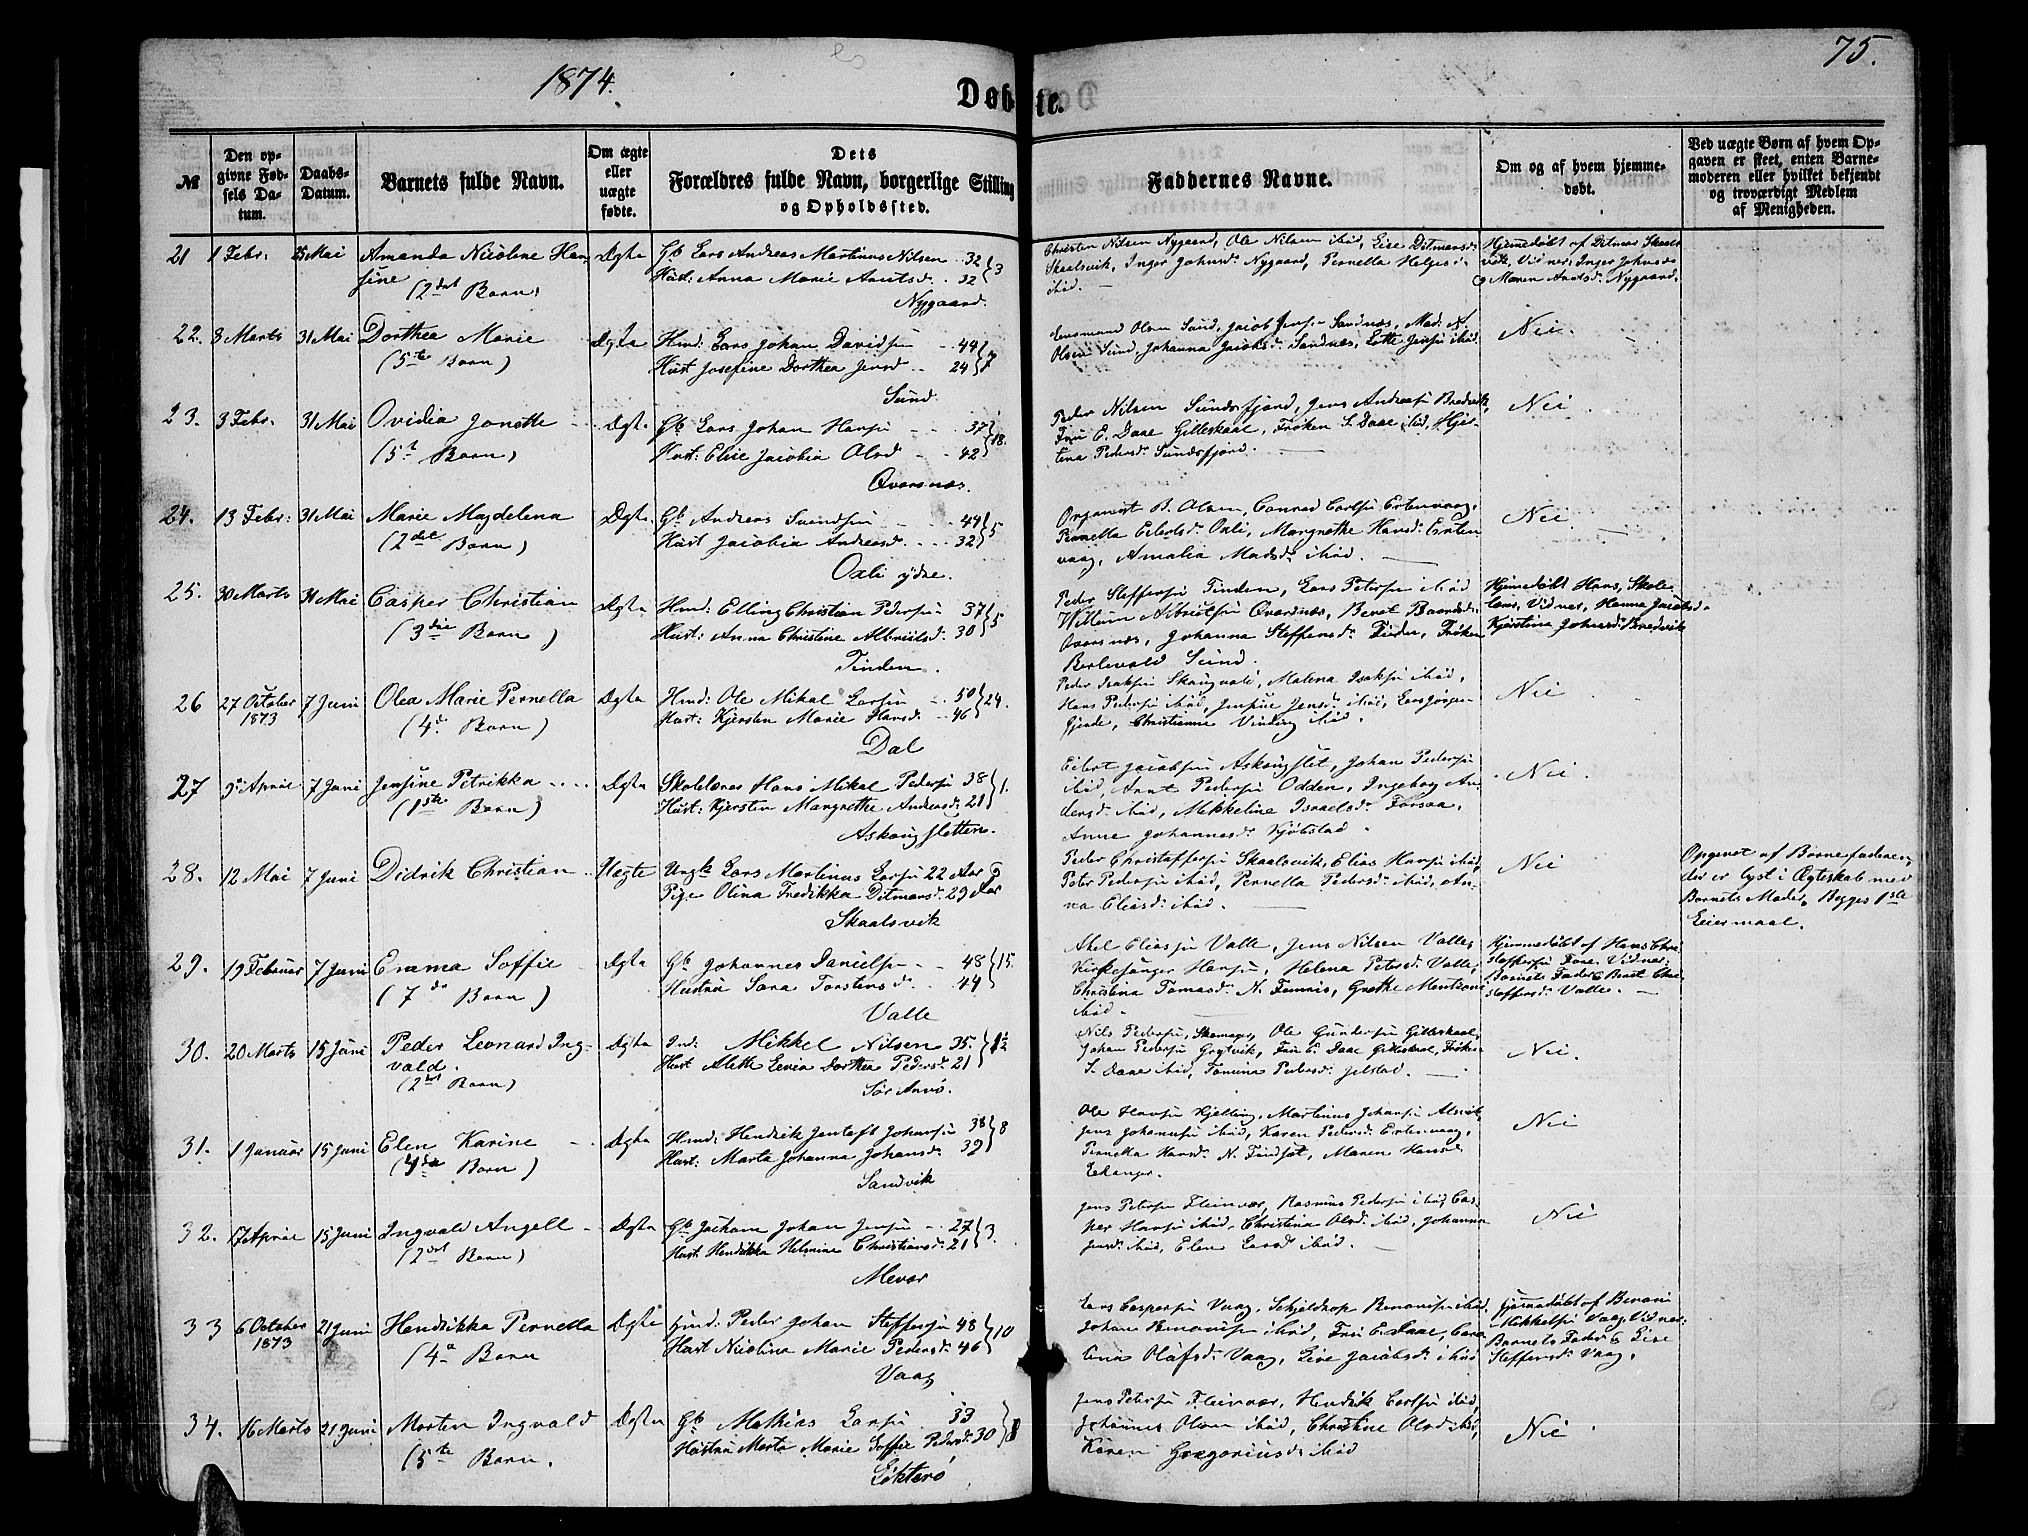 75.
1874.
Døbte.
№
Den opgivne Fødsels Datum.
Daabs-Datum.
Barnets fulde Navn.
Om ægte eller uægte fødte.
Dets Forældres fulde Navn, borgerlige Stilling og Opholdssted.
Faddernes Navne.
Om og af hvem hjemmedøbt.
Ved uægte Børn af hvem Opgaven er skeet, enten Barnemoderen eller hvilket bekjendt og troværdigt Medlem af Menigheden.
21 1 Febr: 25 Mai Amanda Nicoline Han-
sine
(2det Barn)
Ægte
Gb Lars Andreas Martinus Nilsen 32 } 3
Hust: Anna Marie Arntsd. 32
Nygaard.
Christen Nilsen Nygaard, Ole Nilsen ibid, Lise Ditmarsd:
Skaalsvik, Inger Johnsd: Nygaard, Pernella Helges
ibid.
Hjemmedøbt af Ditmar Skaals
vik, Vidner, Inger Johnsd:
Maren Arntsd: Nygaard.
22. 8 Marts 31 Mai Dorthea Marie
(5te Barn)
Ægta
Hmd: Lars Johan Davidsen 44 } 7
Hust Josefine Dorthea Jensd 24
Sund
Olsen Sund, Jacob Sandnæs,
Olsen Sund, Johanna Jacobsd: Sandnæs, Lotte Jensen ibid.
Nei
23. 3 Febr. 31 Mai Ovidia Jonette
(5t Barn)
Ægta
Gb Lars Johan Hansen 37 } 18.
Hust: Elise Jacobia Olsd 42
Qvarsnæs.
Peder Nilsen Sundsfjord, Jens Andreasen Bredvik,
Fru E. Daae Gilleskaal, Frøken S. Daae ibid,
Pedersd: Sundsfjord.
Nei
24. 13 Febr: 31 Mai Marie Magdelena
(2det Barn)
Ægta.
Gb Andreas Svendsen 44 } 5
Hust Jacobia Andreasd. 32
Oxli ydre.
Organist B. Olsen, Conrad Carlsen Ertenvaag,
Pernella Eilertsd: Oxli, Margrethe Hansd: Erten
vaag, Amalia Madsd: ibid.
Nei.
25. 30 Marts 31 Mai Casper Christian
(3die Barn)
Ægta
Hmd: Elling Christian Pedersen 37 } 5
Hust: Anna Christine Albrigtsd. 30
Tinden.
Peder Steffensen Tinden, Lars Petersen ibid
Qvarsnæs, Beret
Qvarsnæs, Johanna Steffensd: Tinden, Frøken
Sund.
Hjemmedøbt Hans, Skole
lærer, Vidner, Hanna Jacobsd.
Kjerstina Johnsd: Bredvik
26 27 October 1873 7 Juni Olea Marie Pernella
(4de Barn)
Ægta
Hmd: Ole Mikal Larsen 50 } 24.
Hust: Kjersten Marie Hansd: 46
Dal
Peder Isaksen Skaugvold, Malena Isaksen ibid,
Hans Pedersen ibid, Jensine Jensd: ibid, Lars Jørgen
Christianne Vinding ibid.
Nei
27 5 April 7 Juni Jensine Petrikka
(1ste Barn)
Ægta
Skolelærer Hans Mikal Pedersen 38 } 1.
Hust: Kjersten Margrethe Andersd: 21
Askaugsletten.
Eilert Jacobsen Askaugslet, Johan Pedersen
ibid, Arnt Pedersen Odden, Ingeborg An-
dersd: ibid, Mikkeline Israelsd: Forsaa,
Anne Johannesd: Kjøbstad.
Nei
28. 12 Mai 7 Juni Didrik Christian
Uegte
Ungk: Lars Martinus Larsen 22 Aar
Pige Olina Fredikka Ditmarsd. 29 Aar
Skaalsvik
Peder Christoffersen Skaalsvik, Elias Hansen ibid,
Peter Pedersen ibid, Pernella Pedersd: ibid, An-
na Eliasd: ibid.
Nei
Opgivet af Barnefaderen,
der er lyst i Ægteskab med
Barnets Moder, Begges 1ste
Leiermaal.
29. 19 Februar 7 Juni Emma Soffie
(7de Barn)
Ægta
Gb Johannes Danielsen 48 } 15.
Hustru Sara Torstensd: 44
Valle
Axel Eliassen Valle, Jens Nilsen Valle,
Kirkesanger Hansen, Helena Petersd: Valle,
Christina Tomasd: N. Femris, Grethe
ibid.
Hjemmedøbt af Hans Chri-
stoffersen Fore, Vidner:
Barnets Fader & Berit Chri-
stoffersd: Valle.
30. 20 Marts 15 Juni Peder Leonard Ing-
vald.
(2det Barn)
Ægta
Ind: Mikkel Nilsen 35 } 1½
Hust Alette Levia Dorthea Pedersd: 21
Sør Arnø.
Nils Pedersen, Ole Gundersen Gilleskaal,
Johan Pedersen Grytvik, Fru E. Daae Gilleskaal, Frøken
S. Daae ibid, Pedersd: Jelstad.
Nei.
31. 1 Januar 15 Juni Elen Karine
(4de Barn)
Ægta
Hmd: Hendrik Jentoft Johnsen 38 } 8
Hust: Marta Johanna Johansd: 39
Sandvik
Ole Hansen Kjelling, Martinus Johansen Alsvik,
Jens Johansen ibid, Karen Pedersd: Ertenvaag,
Pernella Hansd: N. Findset, Maren Hansd:
Nei
32. 17 April 15 Juni Ingvald Angell
(2det Barn)
Ægta
Gb Jochum Johan Jensen 27 } 3.
Hust: Hendikka Helmine Christiansd: 21
Mevær
Jens Petersen Fleinvær, Rasmus Pedersen ibid, Cas-
per Hansen ibid, Christina Olsd: ibid, Johanna
Jensd: ibid, Elen Larsd ibid.
Nei
33 6 October 1873 21 Juni Hendrikka Pernella
(4de Barn
Ægte
Hmd: Peder Johan Steffensen 48 } 10
Hust Nicolina Marie Pedersd: 46
Vaag
Lars Caspersen Vaag, Schjeldrop Benonisen ibid,
Johan Benonisen ibid, Fru E. Daae, Caro
lina Olafsd: Vaag, Lise Jacobsd: ibid
Hjemmedøbt af Benoni
Mikkelsen Vaag, Vidner:
Barnets Fader & Lise
Steffensd: Vaag.
34. 16 Marts 21 Juni Morten Ingvald
(5te Barn.
Ægta
Gb Mathias Larsen 33 } 8
Hustru Marta Marie Soffie Pedersd: 30
Løkterø
Jens Petersen Fleinvær, Hendrik Carlsen ibid,
Johannes Olsen ibid, Christine Olsd ibid,
Karen Gregoriusd: ibid
Nei